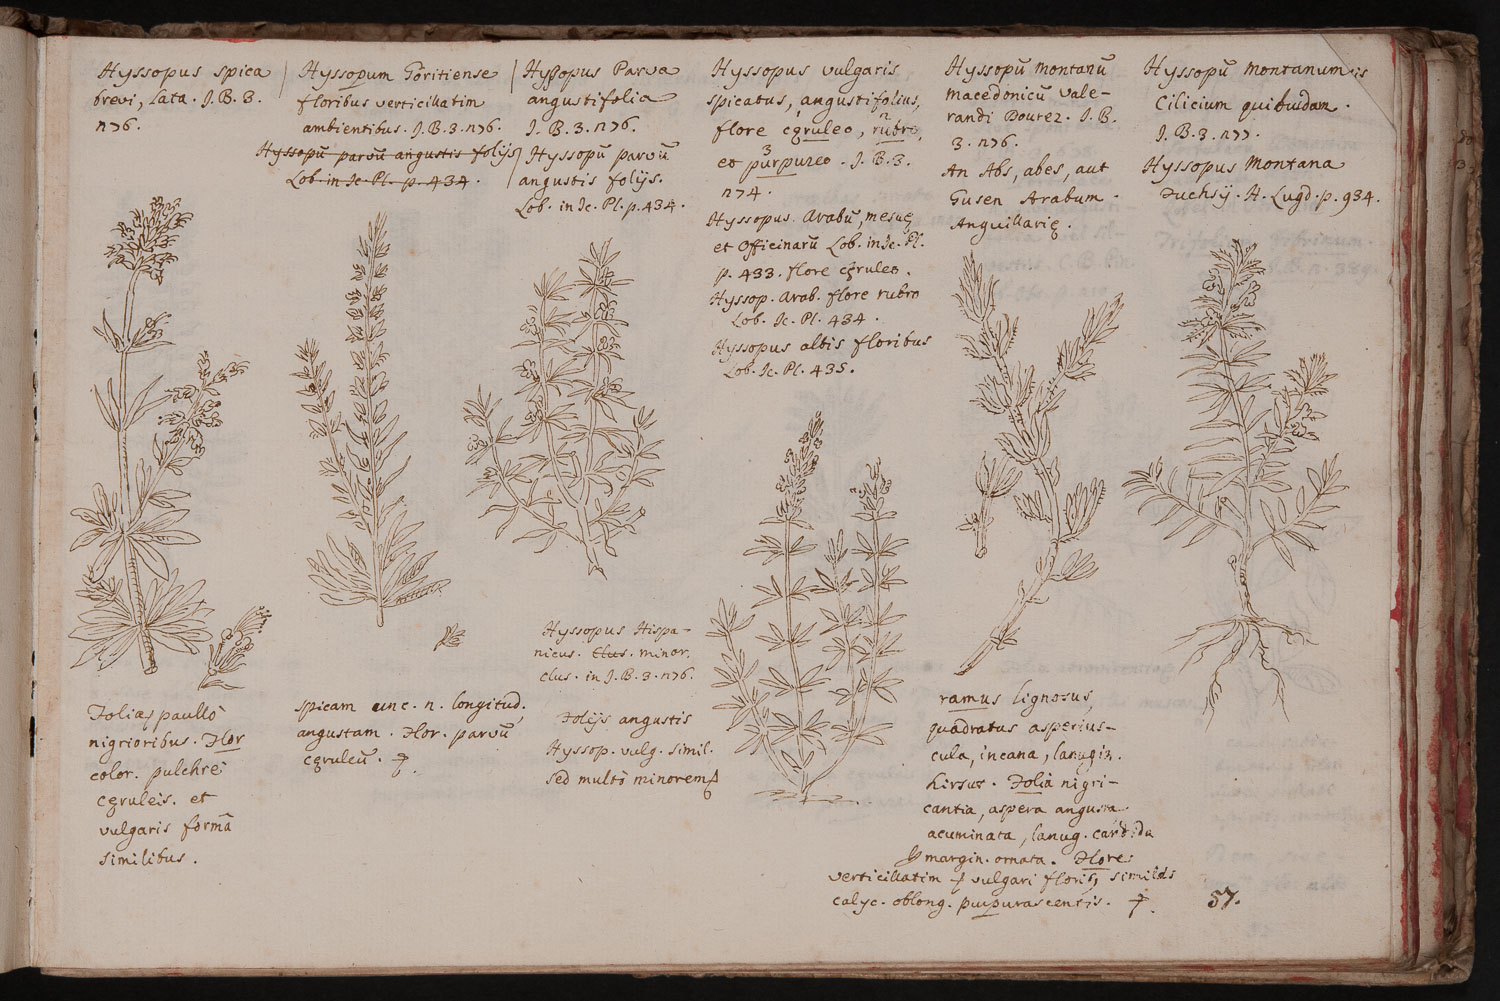 Hyssopus spica
brevi, lata. J.B.3.
n76.
Hyssopum Goritiense
floribus verticillatim
ambientibus. J.B.3.n76.
Hyssopū parvū angustis folijs
Lob. in Ic. Pl. p. 434.
Hyssopus Parva
angustifolia
J.B.3.n76.
Hyssopū parvū
angustis folijs.
Lob. in Ic. Pl. p. 434.
Hyssopus vulgaris
spicatus, angustifolius,
flore cęruleo, rubro,
2
3
et purpureo. J.B.3.
n74.
Hyssopus Arabū, mesuę
et Officinarū Lob. in Ic. Pl.
p. 433. flore cęruleo.
Hyssop. Arab. flore rubro
Lob. Ic. Pl. 434.
Hyssopus albis floribus
Lob. Ic. Pl. 435.
Hyssopū montanū
Macedonicū Vale-
randi Dourez. J.B.
3. n76.
An Abs, abes, aut
Gusen Arabum.
Anguillarię.
Hyssopū montanum
Cilicium quibusdam.
J.B.3.n77.
Hyssopus Montana
Fuchsij. H. Lugd. p. 934.
Hyssopus Hispa-
nicus. Clus. minor.
clus. in J.B.3.n76.
Folijs angustis
Hyssop. vulg. simil.
sed multò minorem
Folias paullò
nigrioribus. Flor
color. pulchrè
cęruleis. et
vulgaris formā
similibus.
spicam unc. n. longitud.
angustam. Flor. parvū
cęruleū.
ramus lignosus
quadratus asperius-
cula, incana, lanugin.
hirsut. Folia nigri-
cantia, aspera angusta
acuminata, lanug. candida
margin. ornata. Flores
verticillatim vulgari florib,
calyc. oblong. purpurascentis.
57.